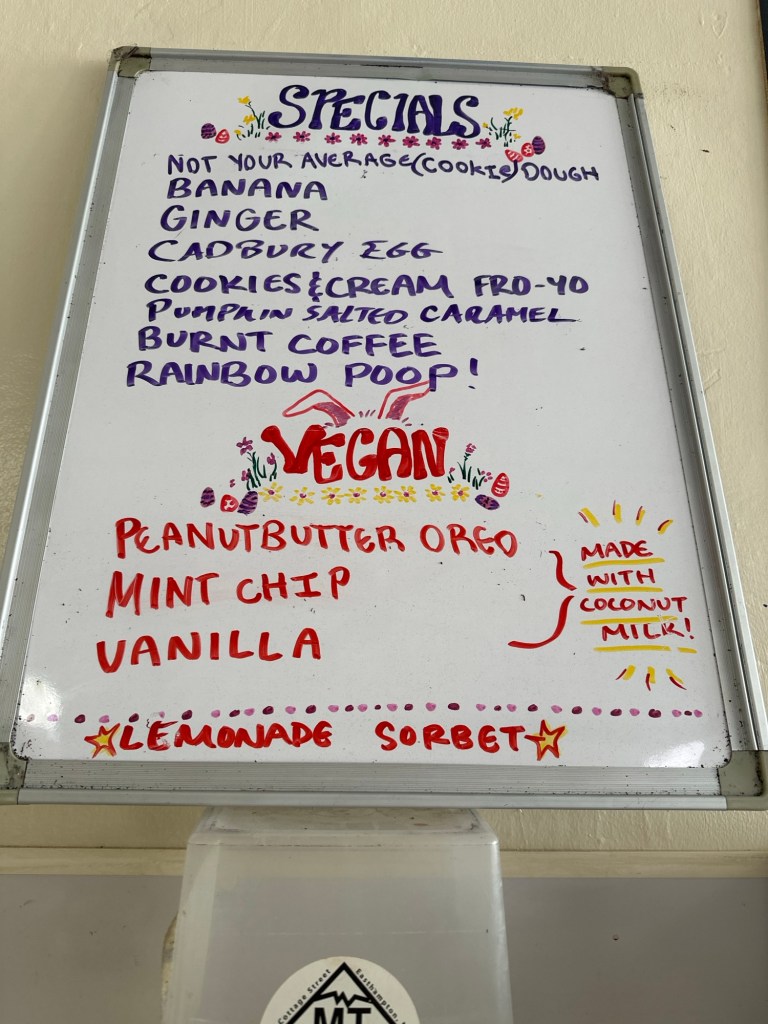 SPECIALS
NOT YOUR AVERAGE (COOKIE) DOUGH
BANANA
GINGER
CADBURY EGG
COOKIES & CREAM FRO-YO
PUMPKIN SALTED CARAMEL
BURNT COFFEE
RAINBOW POOP!
VEGAN
PEANUTBUTTER OREO
MINT CHIP
VANILLA
MADE
WITH
COCONUT
MILK!
LEMONADE SORBET
Cottage Street
Easthampton,
MT